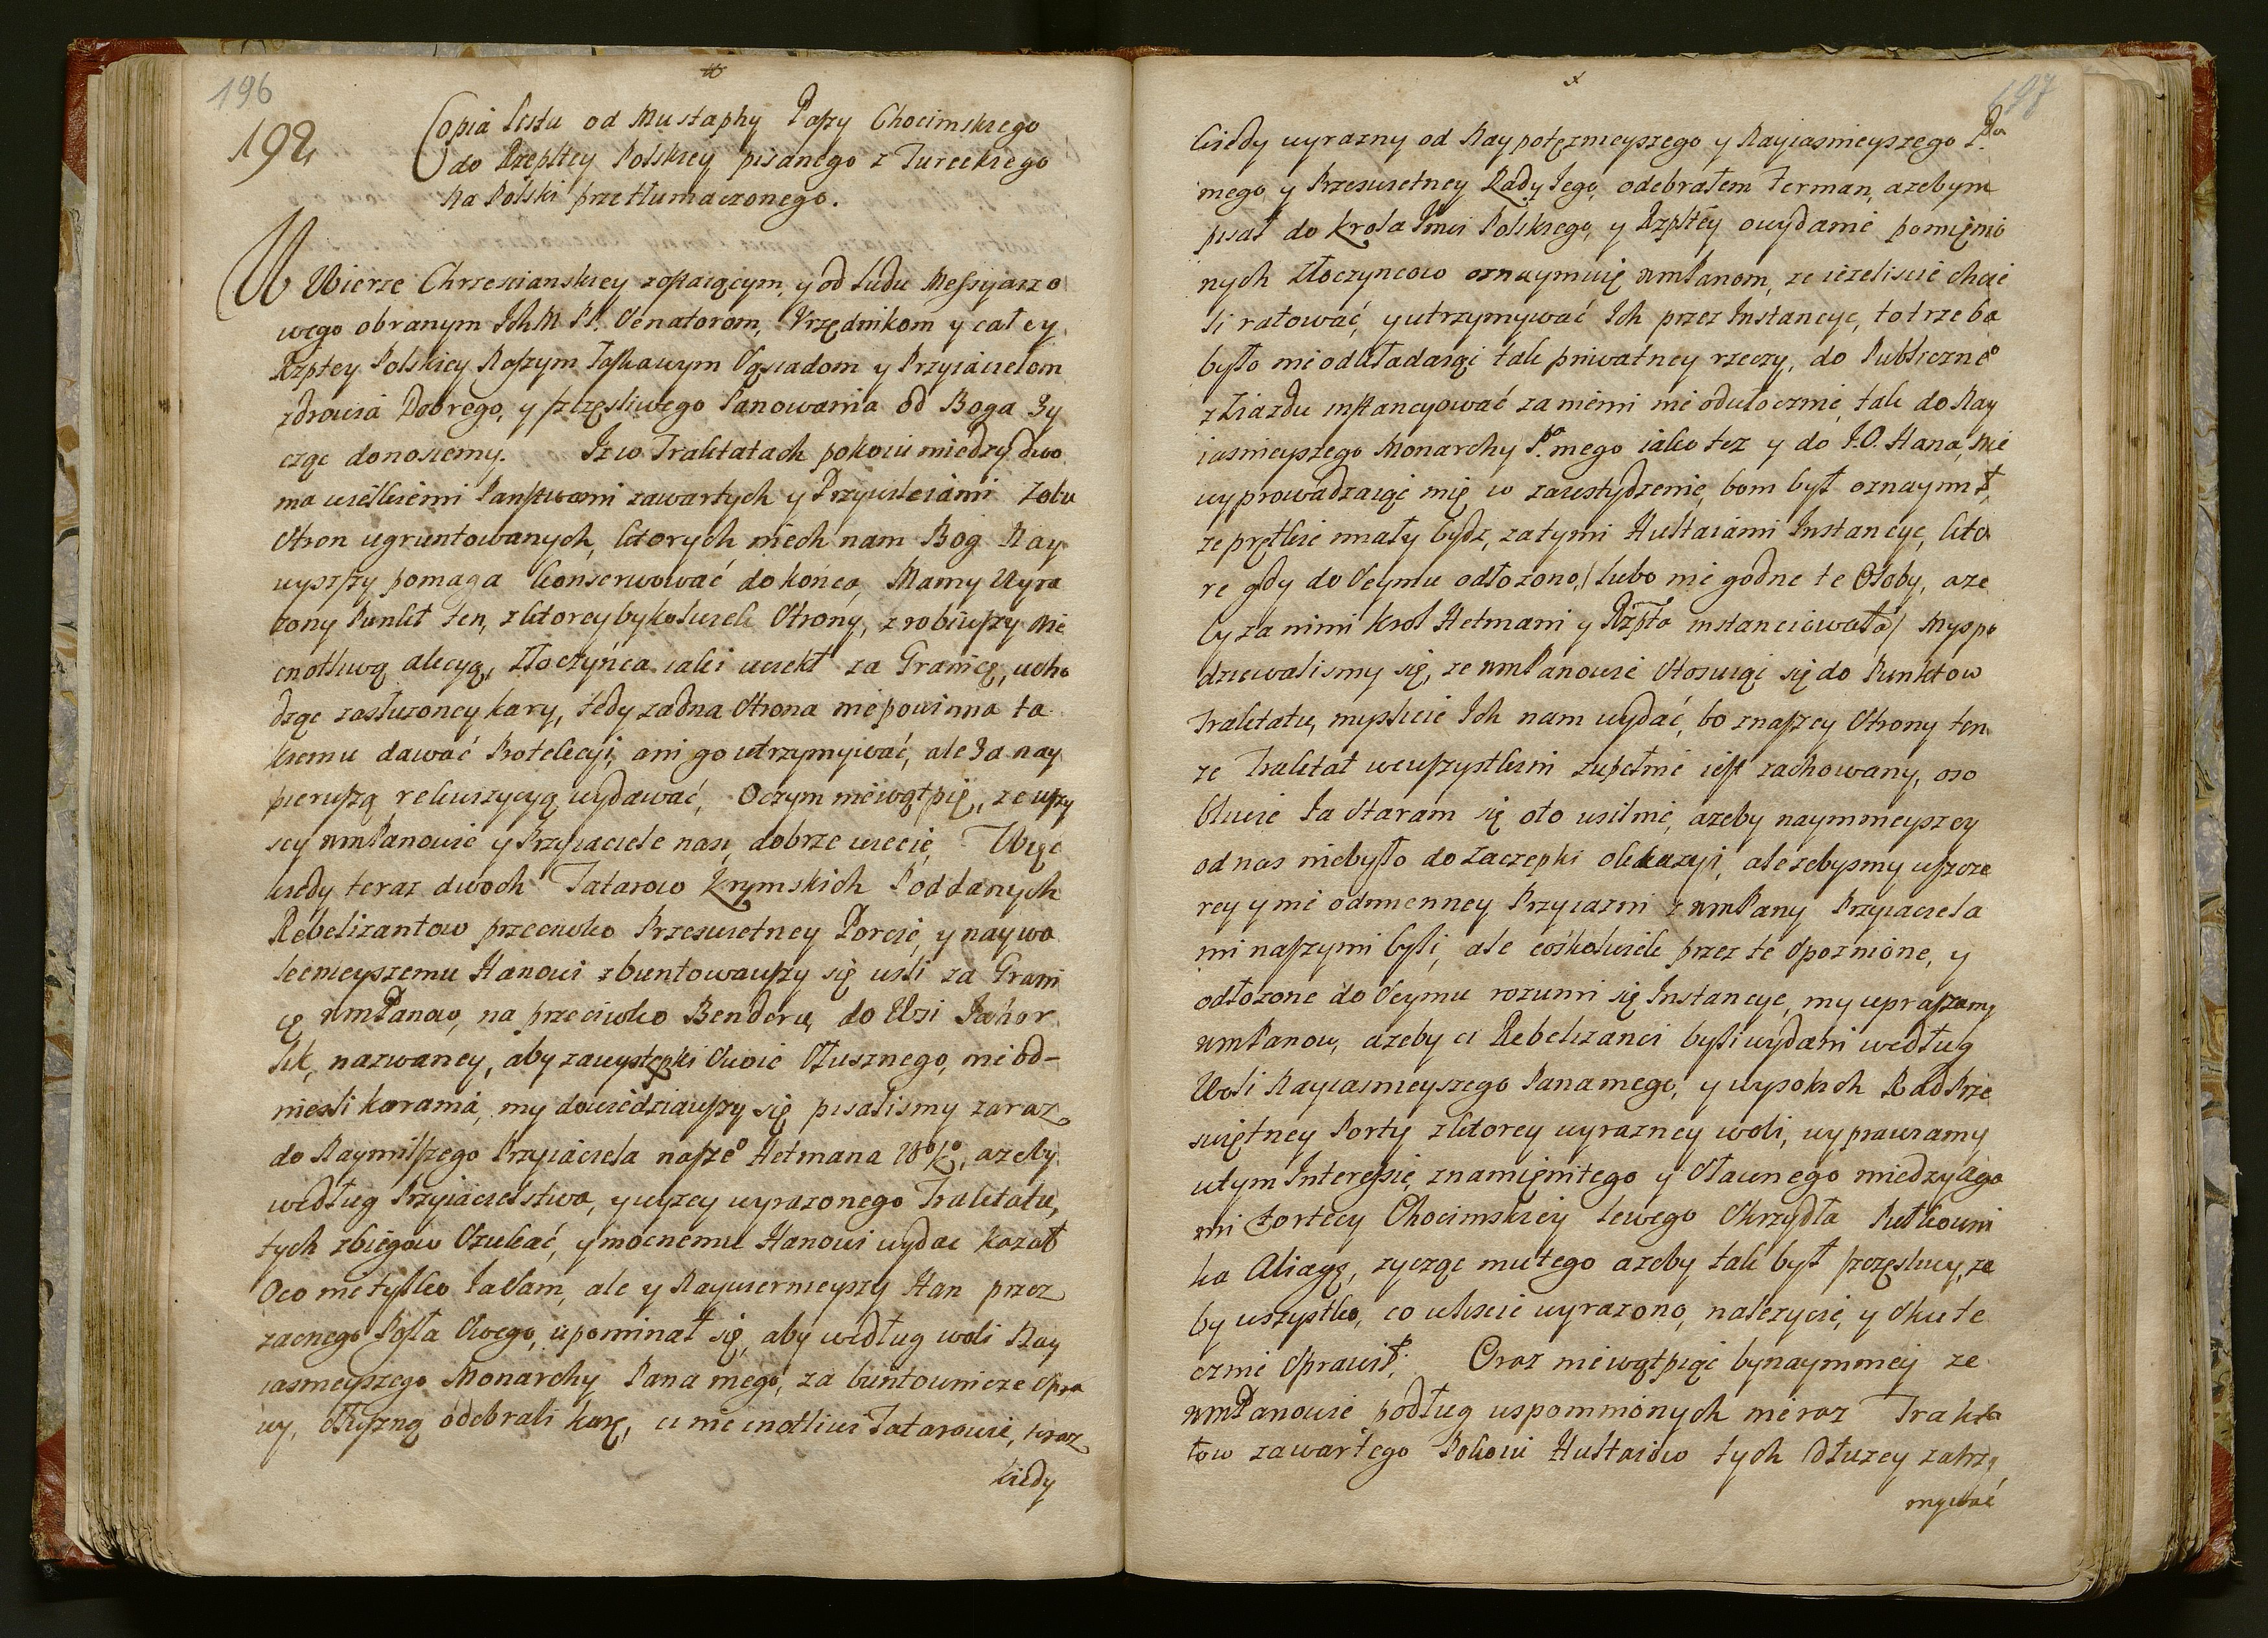 196
192
Copia Listu od Mustaphy Paszy Chocimskiego
do Rzepltey Polskiey pisanego z Tureckiego
Na Polski przetłumaczonego.
W Wierze Chrzescianskiey zostaiącym, y od ludu Messyaszo
wego obranym Ich M PP. Senatorom, Vrzędnikom y całey
Rzptey Polskiey Naszym Łaskawym Sąsiadom y Przyiacielom
zdrowia Dobrego, y szczęsliwego Panowania od Boga zy
cząc donosiemy. Iz w Traktatach pokoiu miedzy dwo
ma wielkiemi Panstwami zawartych y Przywileiami z obu
Stron ugruntowanych, ktorych niech nam Bog Nay
wyszszy pomaga konserwować do końca, Mamy Wyra
zony Punkt ten, z ktoreybykolwiek Strony, zrobiwszy Nie
cnotliwą akcyą, Złoczyńca iaki uciekł za Granicę, ucho
dząc zasłuzoney kary, tedy zadna Strona nie powinna ta
kiemu dawać Protekcyi, ani go utrzymywać, ale za nay
pierwszą rekwizycyą wydawać, Oczym nie wątpię, ze wszy
scy WmPanowie y Przyiaciele nasi, dobrze wiecie, Więc
kiedy teraz dwoch Tatarow Krymskich Poddanych
Rebelizantow przeciwko Przeswietney Porcie, y naywa
lecznieyszemu Hanowi zbuntowawszy się uszli za Grani
cę WmPanow, na przeciwko Benderu, do Wsi Jahor
lik, nazwaney, aby za występki Swoie Słusznego, nie od-
niesli karania, my dowiedziawszy się pisalismy zaraz
do Naymilszego Przyiaciela nasze⁰ Hetmana W⁰ K⁰, azeby
według Przyiacielstwa, y wyzey wyrazonego Traktatu,
tych zbiegow Szukać, y mocnemu Hanowi wydac kazał
Oco nie tylko Ia Sam, ale y Naywiernieyszy Han przez
zacnego Posła Swego, upominał się, aby według woli Nay
iasnieyszego Monarchy Pana mego, za buntownicze Spra
wy, Słuszną odebrali karę, ci nie cnotliwi Tatarowie, teraz
kiedy
197
kiedy wyrazny od Naypotęznieyszego y Nayiasnieyszego Pa
mego, y Przeswietney Rady Iego, odebrałem Ferman, azebym
pisał do Krola Jmci Polskiego, y Rzpltey o wydanie pomienio
nych Złoczyncow oznaymuię WmPanom, ze iezeliscie chcie
li ratować, y utrzymywać Ich przez Instancye, to trzeba
było nie odkładaiąc tak priwatney rzeczy, do Publiczne⁰
z Iazdu instancyować za niemi nie odwłocznie, tak do Nay
iasnieyszego Monarchy Pa mego iako tez y do J.O. Hana, nie
wyprowadzaiąc mię w zawstydzenie, bom był oznaymił,
ze prętkie miały bydz, za tymi Hultaiami Instancye, kto
re gdy do Seymu odłozono,/ lubo nie godne te Osoby, aze
by za nimi Krol Hetmani y Rzplta instanciowała/ Myspo
dziewalismy się, ze WmPanowie Stosuiąc się do Punktow
Traktatu, mysliscie Ich nam wydać, bo z naszey Strony ten
ze Traktat we wszystkim zupełnie iest zachowany, oso
bliwie Ia Staram się oto usilnie, azeby naymnieyszey
od nas niebyło do zaczepki okkazyi, ale zebysmy w szcze
rey y nie odmienney Przyiazni z WmPany Przyiaciela
mi naszymi byli, ale cośkolwiek przez te Spoznione, y
odłozone do Seymu rozumi się Instancye, my upraszamy
WmPanow, azeby ci Rebelizanci byli wydani według
Woli Nayiasnieyszego Pana mego, y wysokich Rad Prze
swiętney Porty z ktorey wyrazney woli, wyprawiamy
w tym Interessie, znamięnitego y Sławnego miedzy Aga
mi Fortecy Chocimskiey lewego Skrzydła Pułkowni
ka Aliagę, zycząc mu tego azeby tak był szczęsliwy, ze
by wszystko, co w liscie wyrazono, nalezycie, y Skute
cznie Sprawił. Oraz nie wątpiąc bynaymniey ze
WmPanowie podług wspomnionych nie raz Trakta
tow zawartego Pokoiu Hultaiow tych dłuzey zatrzy
mywać